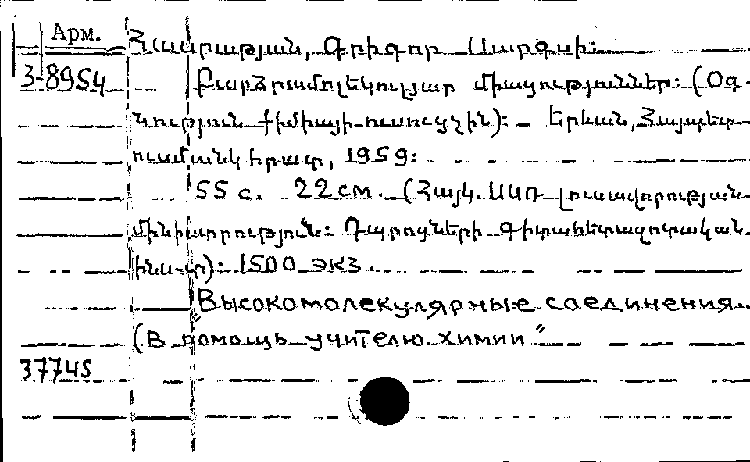 Арм.
Հասրաթյան, Գրիգոր Սարգսի:
3-8954 Բարձրամոլեկուլյար միացություններ: (Օգ-
նություն քիմիայի ուսուցչին): – Երևան, Հայպետ-
ուսմանկհրատ, 1959:
55 с. 22 см. (Հայկ. ՍՍՌ լուսավորության
մինիստրություն: Դպրոցների գիտահետազոտական
ինս-տ): 1500 экз.
"Высокомолекулярные соединения
(В помощь учителю химии"
37745